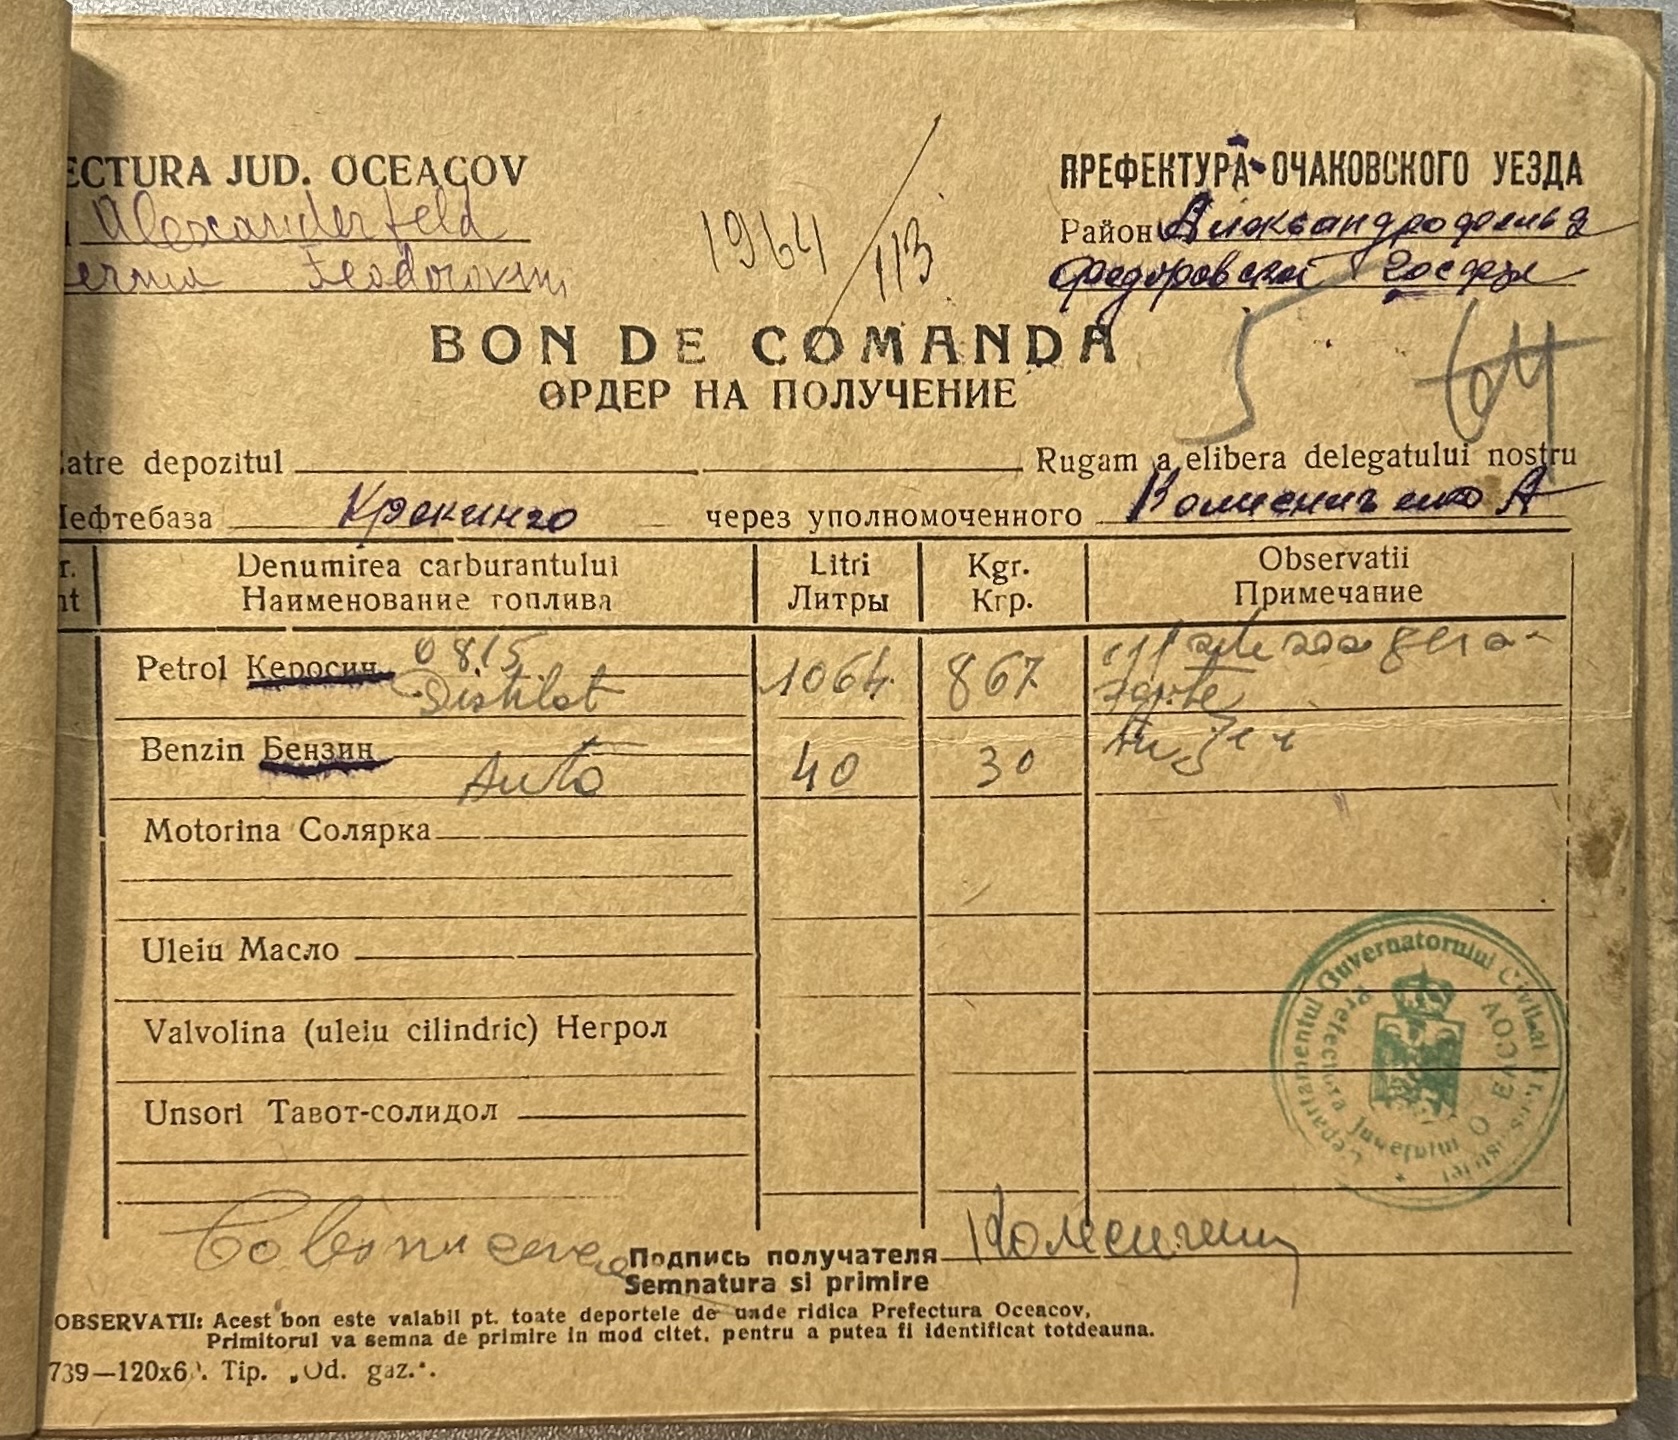 ECTURA JUD. OCEACOV
Alexanderfeld
erma Feodorovni
1964/113
ПРЕФЕКТУРА ОЧАКОВСКОГО УЕЗДА
Район Александрофельд
Федоровской Госфер
BON DE COMANDA
ОРДЕР НА ПОЛУЧЕНИЕ
5
atre depozitul Rugam a elibera delegatului nostru
Нефтебаза Крекинго через уполномоченного А
r. Denumirea carburantului Litri Kgr. Observatii
nt Наименование топлива Литры Кгр. Примечание
Petrol Керосин 0815 Distilat 1064 867
Benzin Бензин Auto 40 30
Motorina Солярка
Uleiu Масло
Valvolina (uleiu cilindric) Негрол
Unsori Тавот-солидол
Departamentul Guvernatorului Civil al Transnistriei
Prefectura Judetului OCEACOV
Подпись получателя
Semnatura si primire
OBSERVATII: Acest bon este valabil pt. toate deportele de unde ridica Prefectura Oceacov,
Primitorul va semna de primire in mod citet, pentru a putea fi identificat totdeauna.
739—120x6 . Tip. „Od. gaz.“.